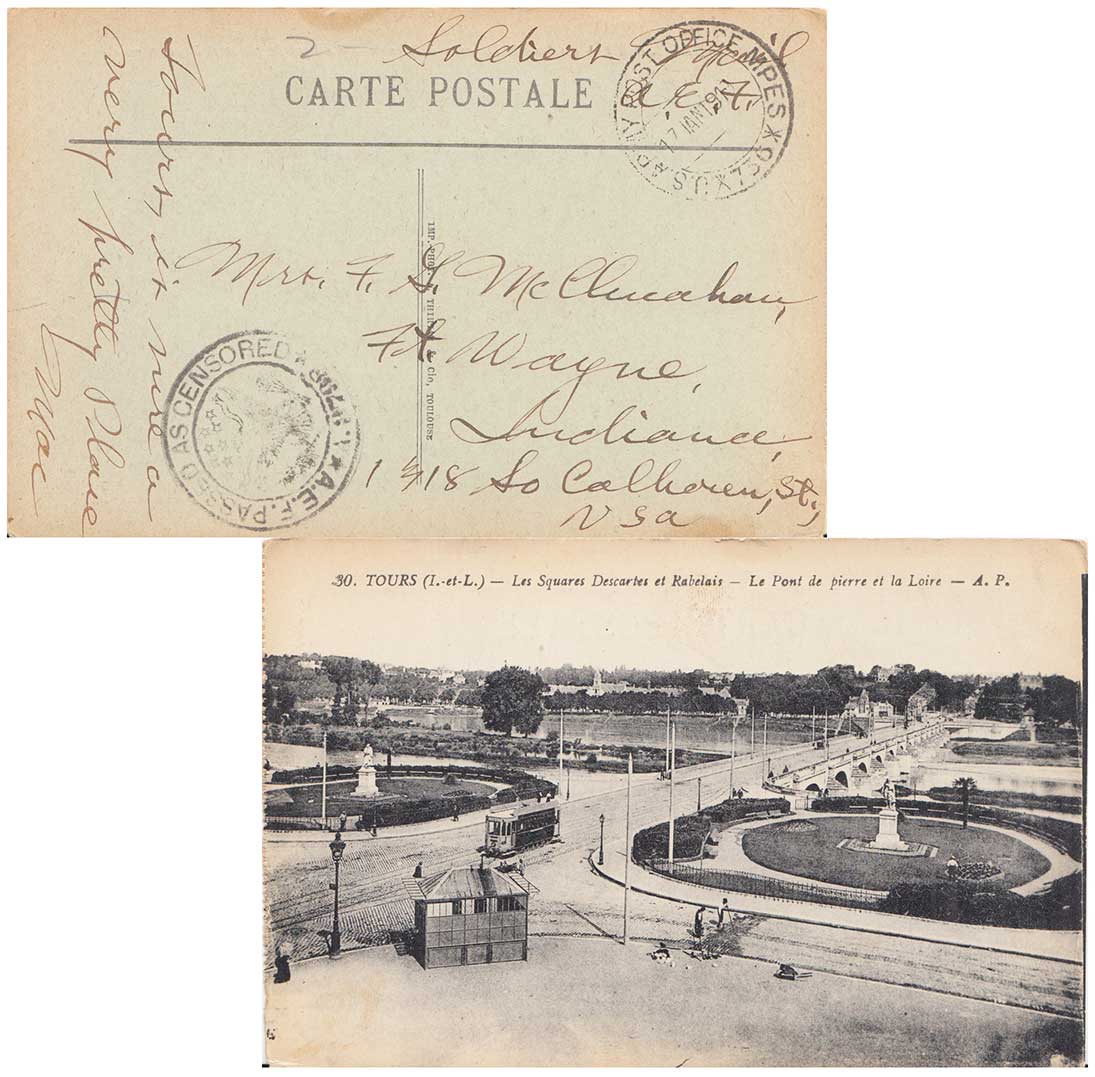 Soldiers Mail
CARTE POSTALE
A. E. F.
U.S. ARMY POST OFFICE MPES
JAN 19
Tours is such a
very pretty Place
Mac
Mrs. F. S. McClunahan,
Ft Wayne,
Indiana,
1418 So Calhoun, St.,
USA
IMP. PHOT. & Cie, TOULOUSE
A.E.F. PASSED AS CENSORED
30. TOURS (I.-et-L.) — Les Squares Descartes et Rabelais — Le Pont de pierre et la Loire — A. P.